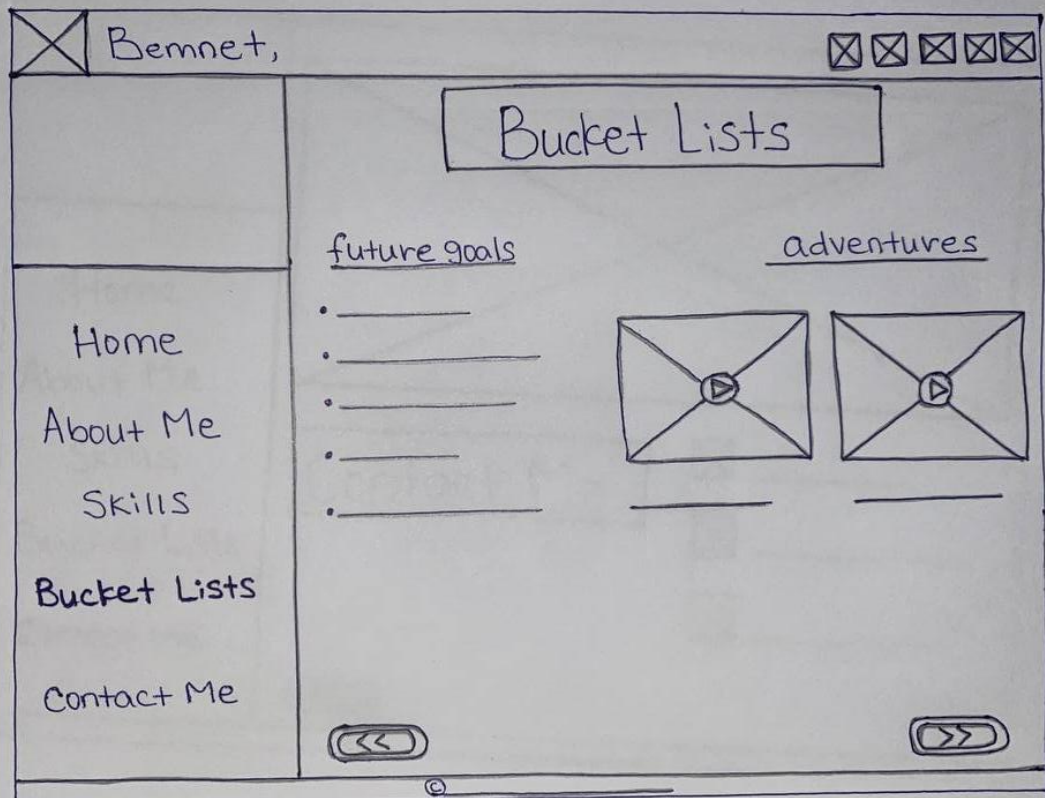 Bemnet,
Bucket Lists
future goals
adventures
Home
About Me
Skills
Bucket Lists
Contact Me
<<
>>
©